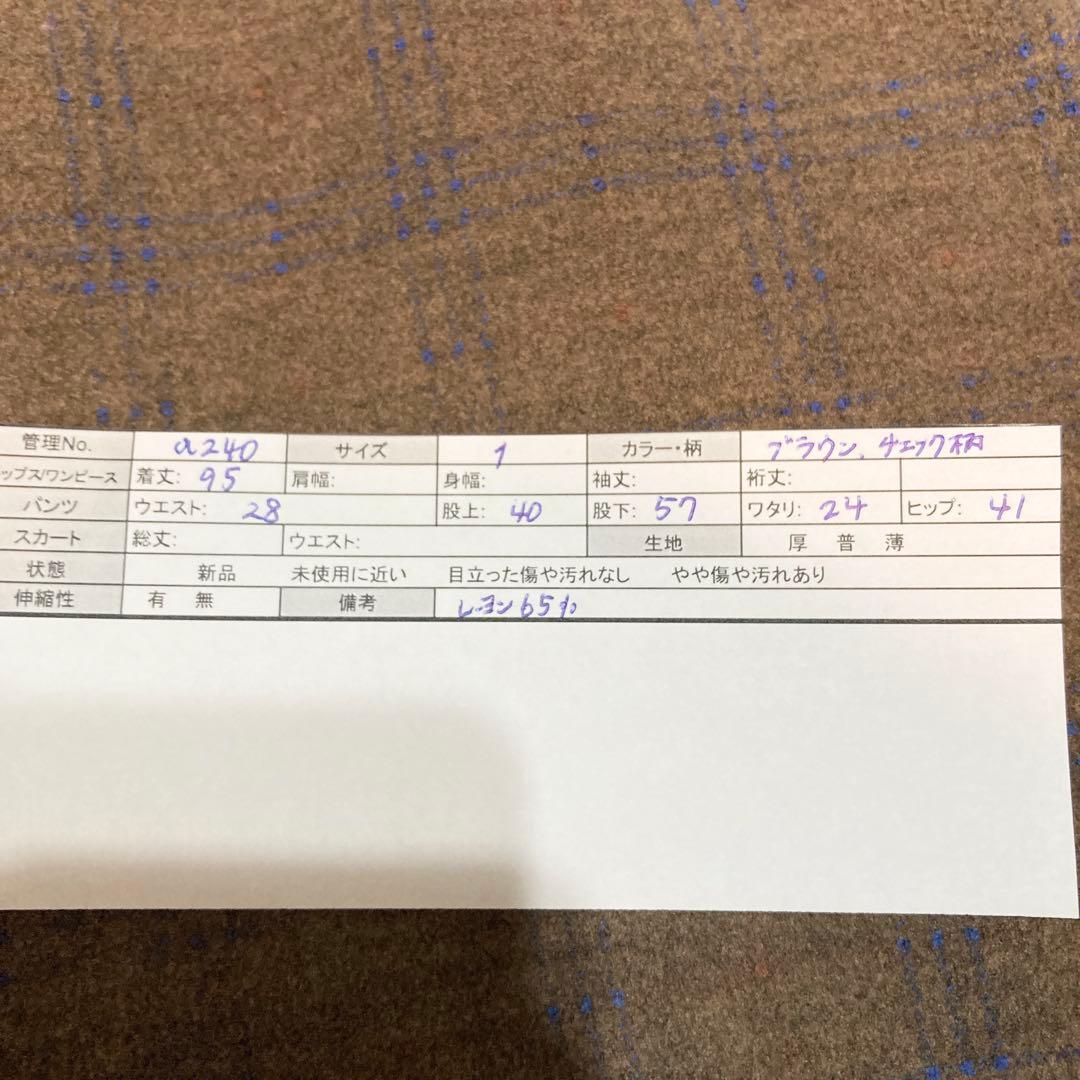 管理No. a240 サイズ 1 カラー・柄 ブラウン、チェック柄
ップス/ワンピース 着丈: 95 肩幅: 身幅: 袖丈: 裄丈:
パンツ ウエスト: 28 股上: 40 股下: 57 ワタリ: 24 ヒップ: 41
スカート 総丈: ウエスト: 生地 厚 普 薄
状態 新品 未使用に近い 目立った傷や汚れなし やや傷や汚れあり
伸縮性 有 無 備考 レーヨン65%